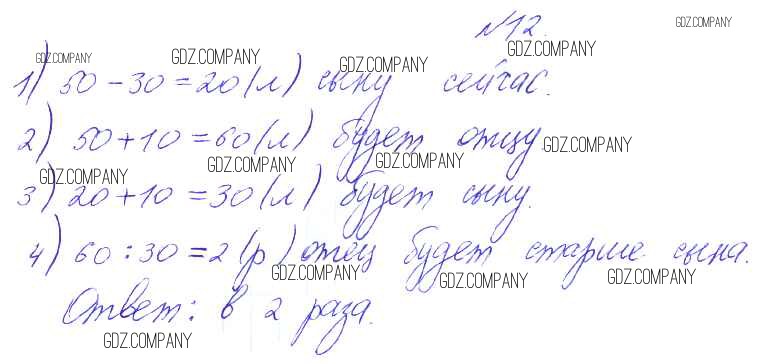 №12.
GDZ.COMPANY
GDZ.COMPANY GDZ.COMPANY GDZ.COMPANY GDZ.COMPANY
1) 50 - 30 = 20 (л) сыну сейчас.
2) 50 + 10 = 60 (л) будет отцу.
GDZ.COMPANY
GDZ.COMPANY GDZ.COMPANY GDZ.COMPANY
3) 20 + 10 = 30 (л) будет сыну.
4) 60 : 30 = 2 (р) отец будет старше сына.
GDZ.COMPANY GDZ.COMPANY GDZ.COMPANY
Ответ: в 2 раза.
GDZ.COMPANY